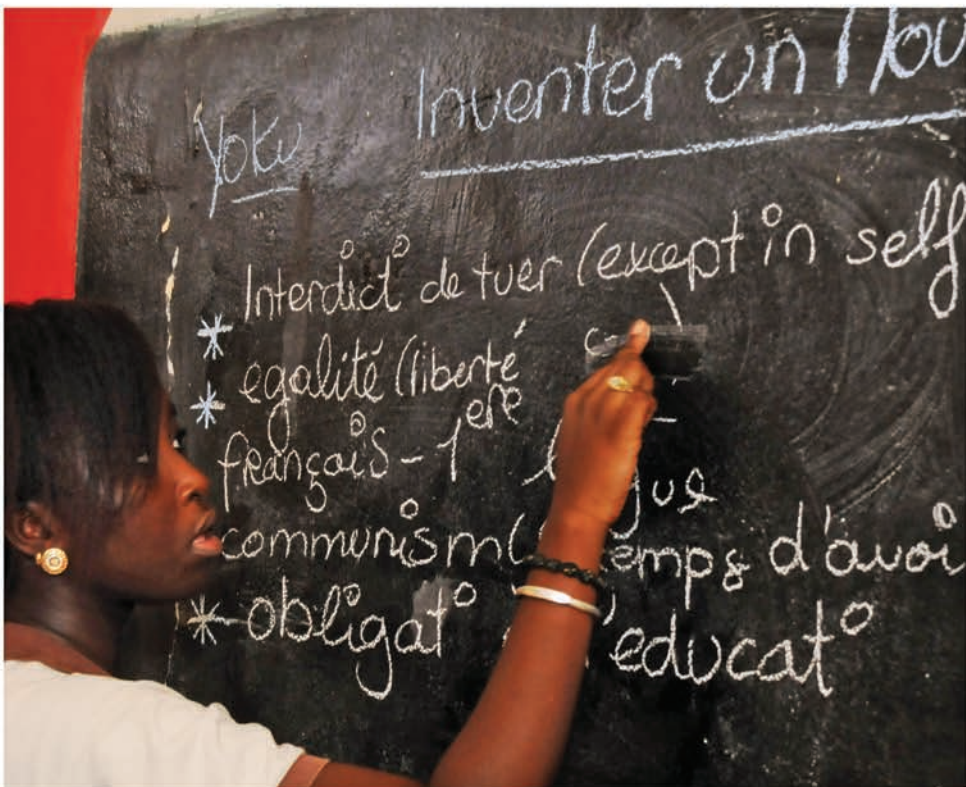 Yoku Inventer un Nou
Interdict de tuer (except in self
* égalité (liberté
* français - 1ere
communism( temps d'avoi
* obligat° l'educat°